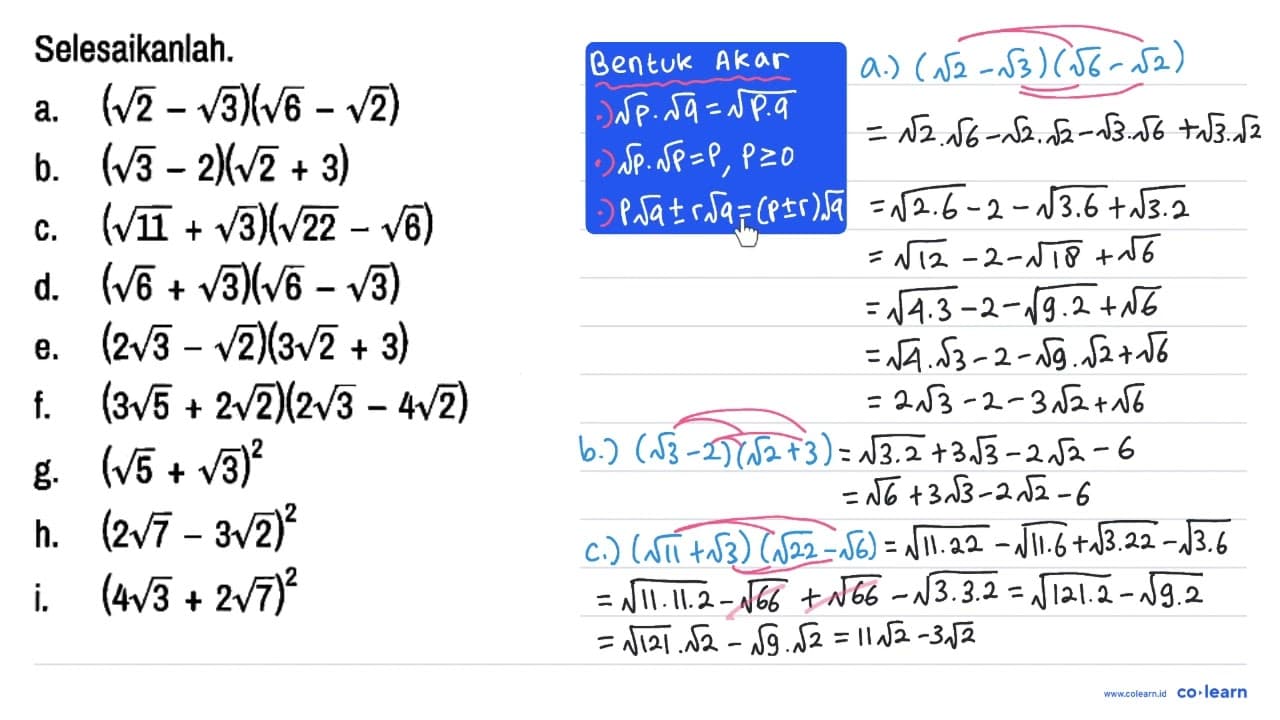 Selesaikanlah.
a. (√2 − √3)(√6 − √2)
b. (√3 − 2)(√2 + 3)
c. (√11 + √3)(√22 − √6)
d. (√6 + √3)(√6 − √3)
e. (2√3 − √2)(3√2 + 3)
f. (3√5 + 2√2)(2√3 − 4√2)
g. (√5 + √3)²
h. (2√7 − 3√2)²
i. (4√3 + 2√7)²
Bentuk Akar
•) √p.√q = √p.q
•) √p.√p = p, p ≥ 0
•) p√q ± r√q = (p ± r)√q
a.) (√2 − √3)(√6 − √2)
= √2.√6 − √2.√2 − √3.√6 + √3.√2
= √2.6 − 2 − √3.6 + √3.2
= √12 − 2 − √18 + √6
= √4.3 − 2 − √9.2 + √6
= √4.√3 − 2 − √9.√2 + √6
= 2√3 − 2 − 3√2 + √6
b.) (√3 − 2)(√2 + 3) = √3.2 + 3√3 − 2√2 − 6
= √6 + 3√3 − 2√2 − 6
c.) (√11 + √3)(√22 − √6) = √11.22 − √11.6 + √3.22 − √3.6
= √11.11.2 − √66 + √66 − √3.3.2 = √121.2 − √9.2
= √121.√2 − √9.√2 = 11√2 − 3√2
www.colearn.id co·learn